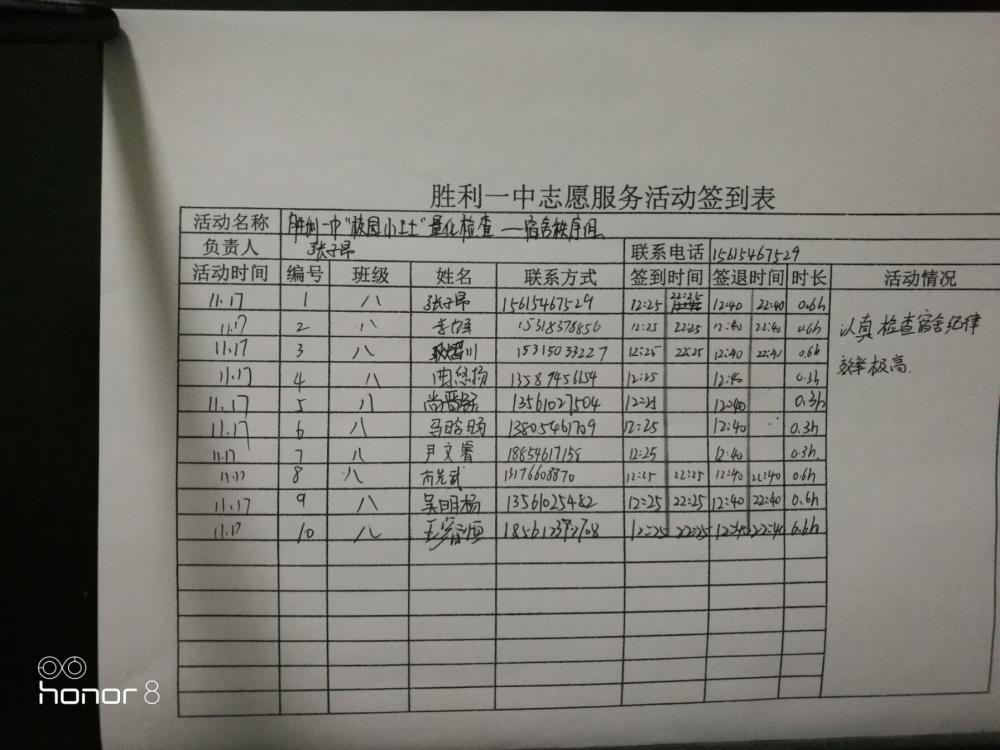 胜利一中志愿服务活动签到表
活动名称 胜利一中"校园小卫士"量化检查——宿舍秩序组
负责人 张子昂 联系电话 15615467529
活动时间 编号 班级 姓名 联系方式 签到时间 签退时间 时长 活动情况
11.17 1 八 张子昂 15615467529 12:25 22:25 12:40 22:40 0.6h
11.17 2 八 15318376856 12:25 22:25 12:40 22:40 0.6h
11.17 3 八 15315033227 12:25 22:25 12:40 22:40 0.6h
11.17 4 八 12:25 12:40 0.3h
11.17 5 八 13561027504 12:25 12:40 0.3h
11.17 6 八 13805461709 12:25 12:40 0.3h
11.17 7 八 尹文睿 12:25 12:40 0.3h
11.17 8 八 13176608870 12:25 22:25 12:40 22:40 0.6h
11.17 9 八 吴明杨 13561025482 12:25 22:25 12:40 22:40 0.6h
11.17 10 八 12:25 22:25 12:40 22:40 0.6h
认真检查宿舍纪律
效率极高.
honor 8